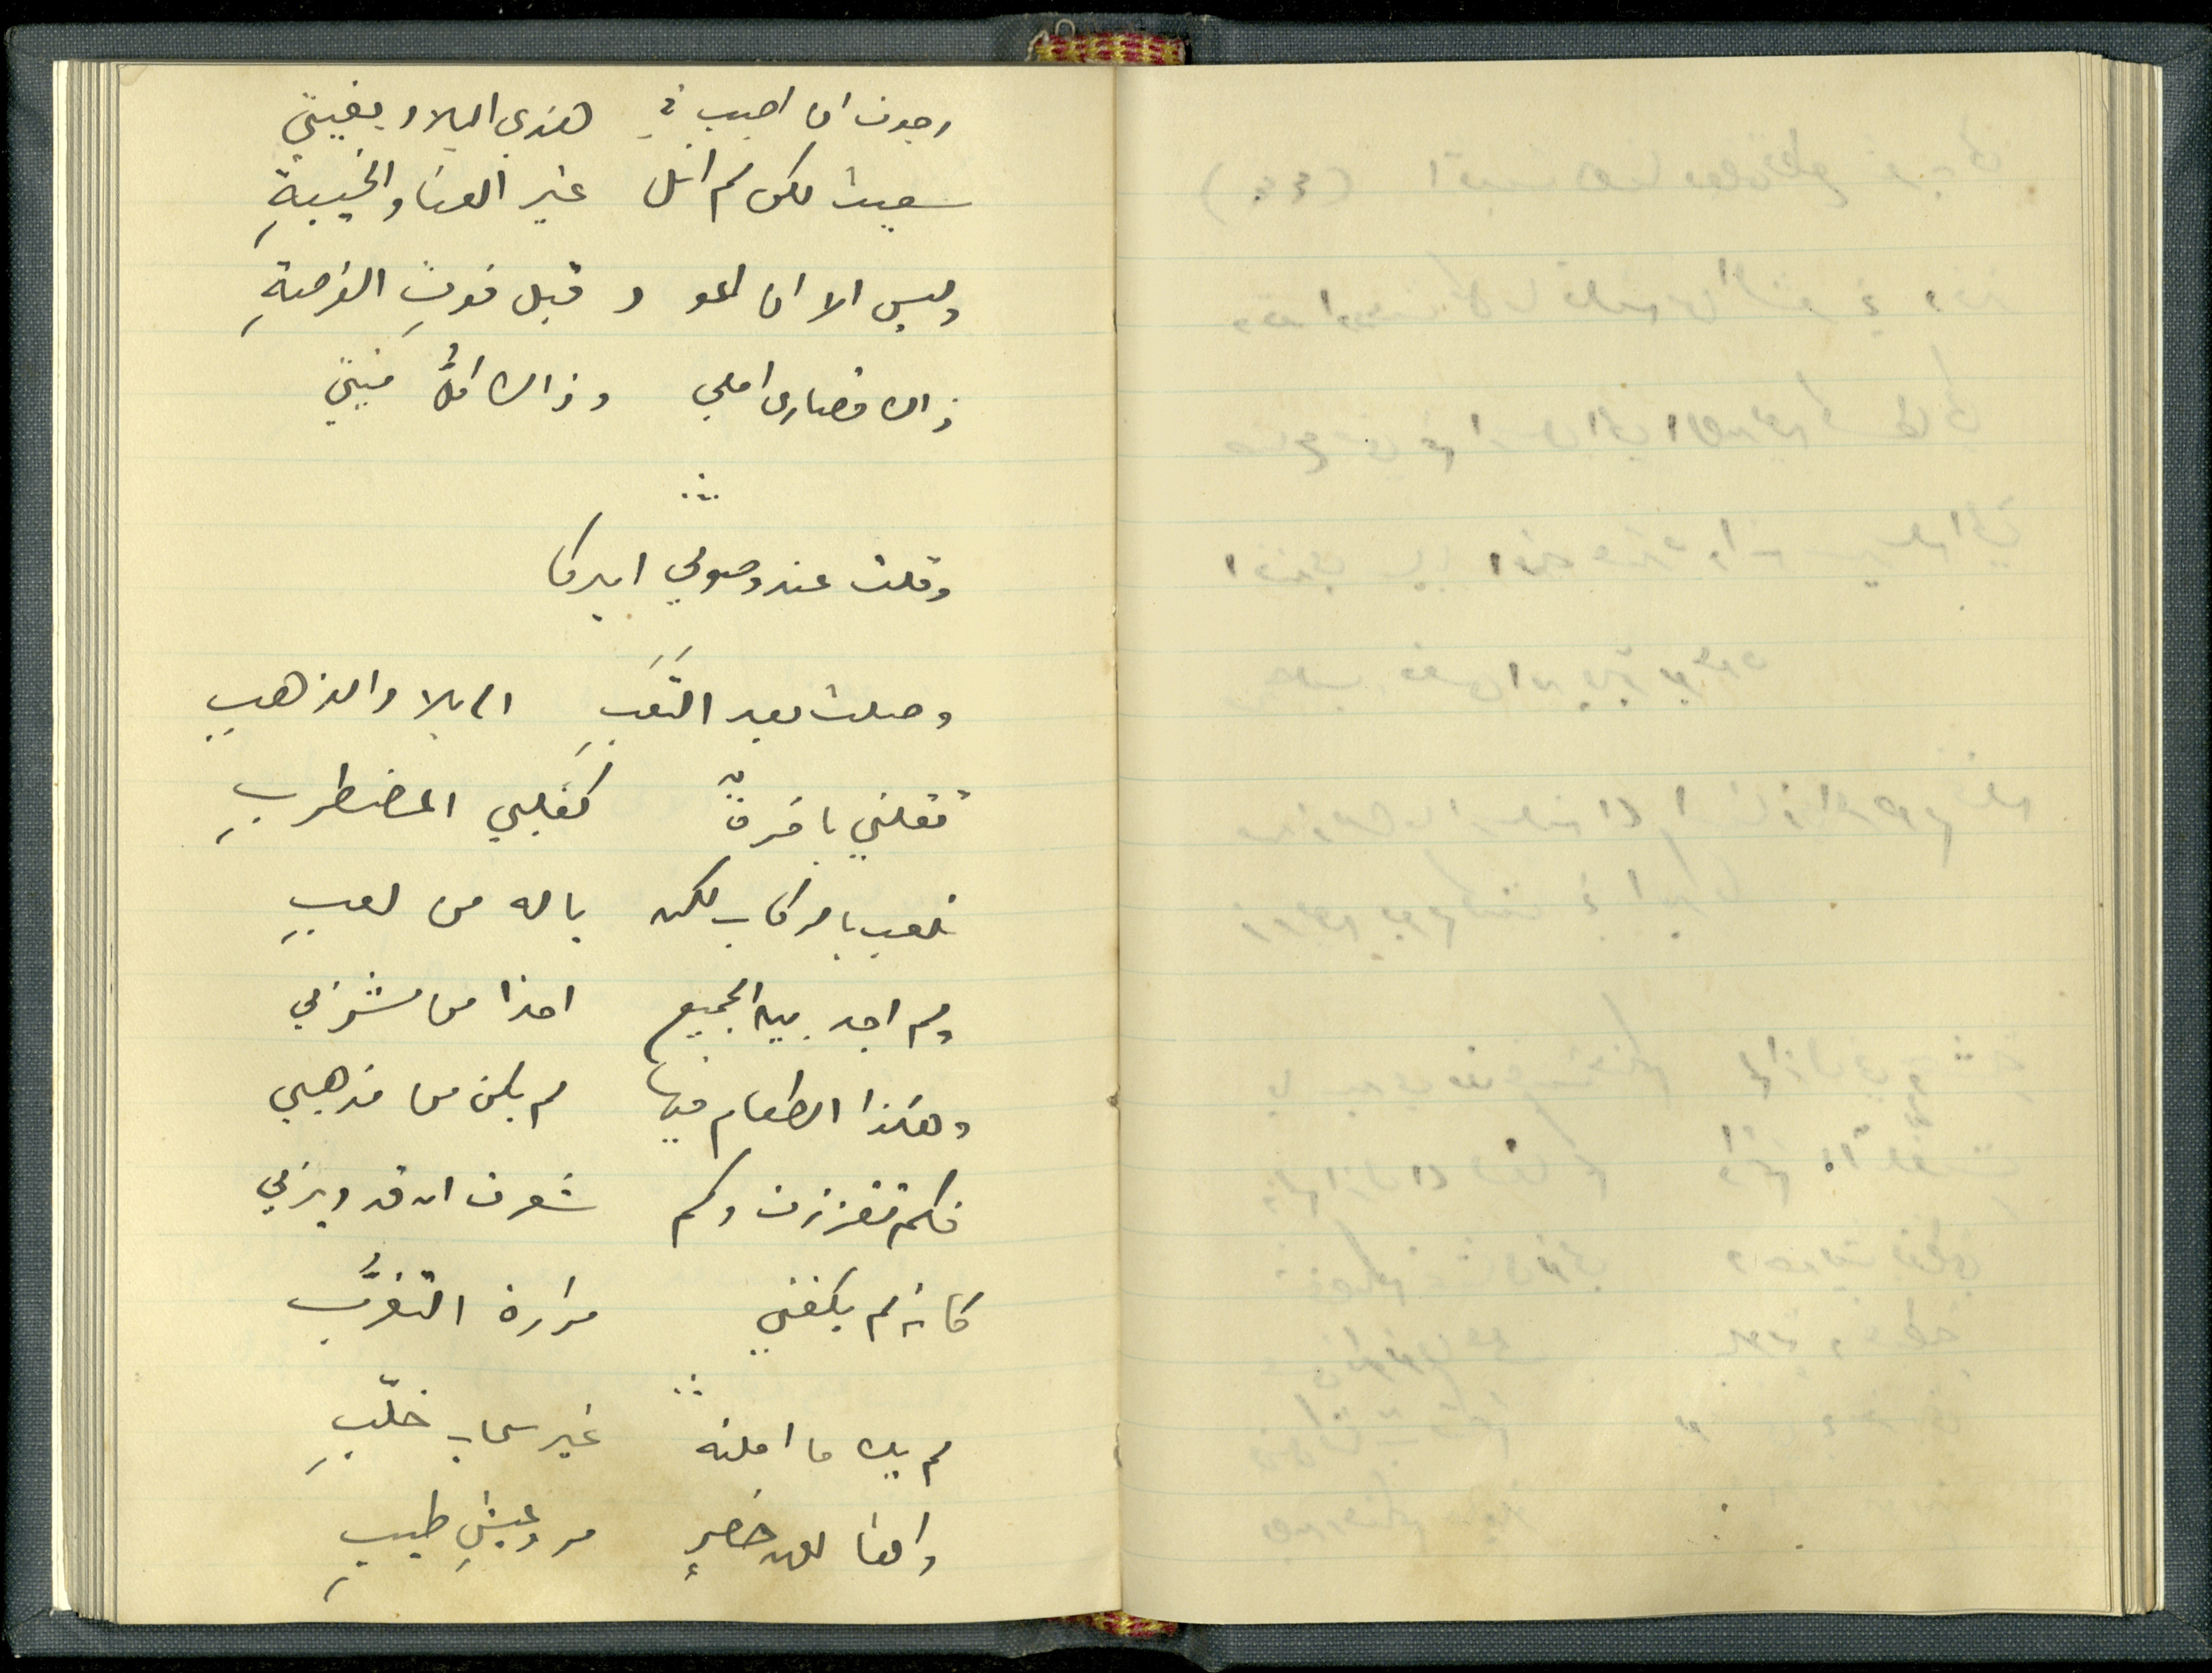 رجوت ان اصيب في هذي البلاد بغيتي
سعيت لكن لم انل غير العنا والخيبةِ
وليس الا ان اعو د قبل فوتِ الفرصةِ
ذاك قصارى املي وذاك اقلُّ منيتي
وقلت عند وصولي اميركا
وصلت بعد التَعَبِ الى بلاد الذهبِ
تقلني باخرةٌ كقلبي المضطربِ
تلعب بالركاب لكن يا له من لعبِ
ولم اجد بين الجميع احدا من مشربي
وهكذا الطعام فيها لم يكن من مذهبي
فكم تقززت وكم شعرت ان قد ويزبي
كانه لم يكفني مرارة التغرُّب
لم يك ما املته غير سحاب خلّبِ
واها لعهد خضرٍ مر وعيشٍ طيبِ